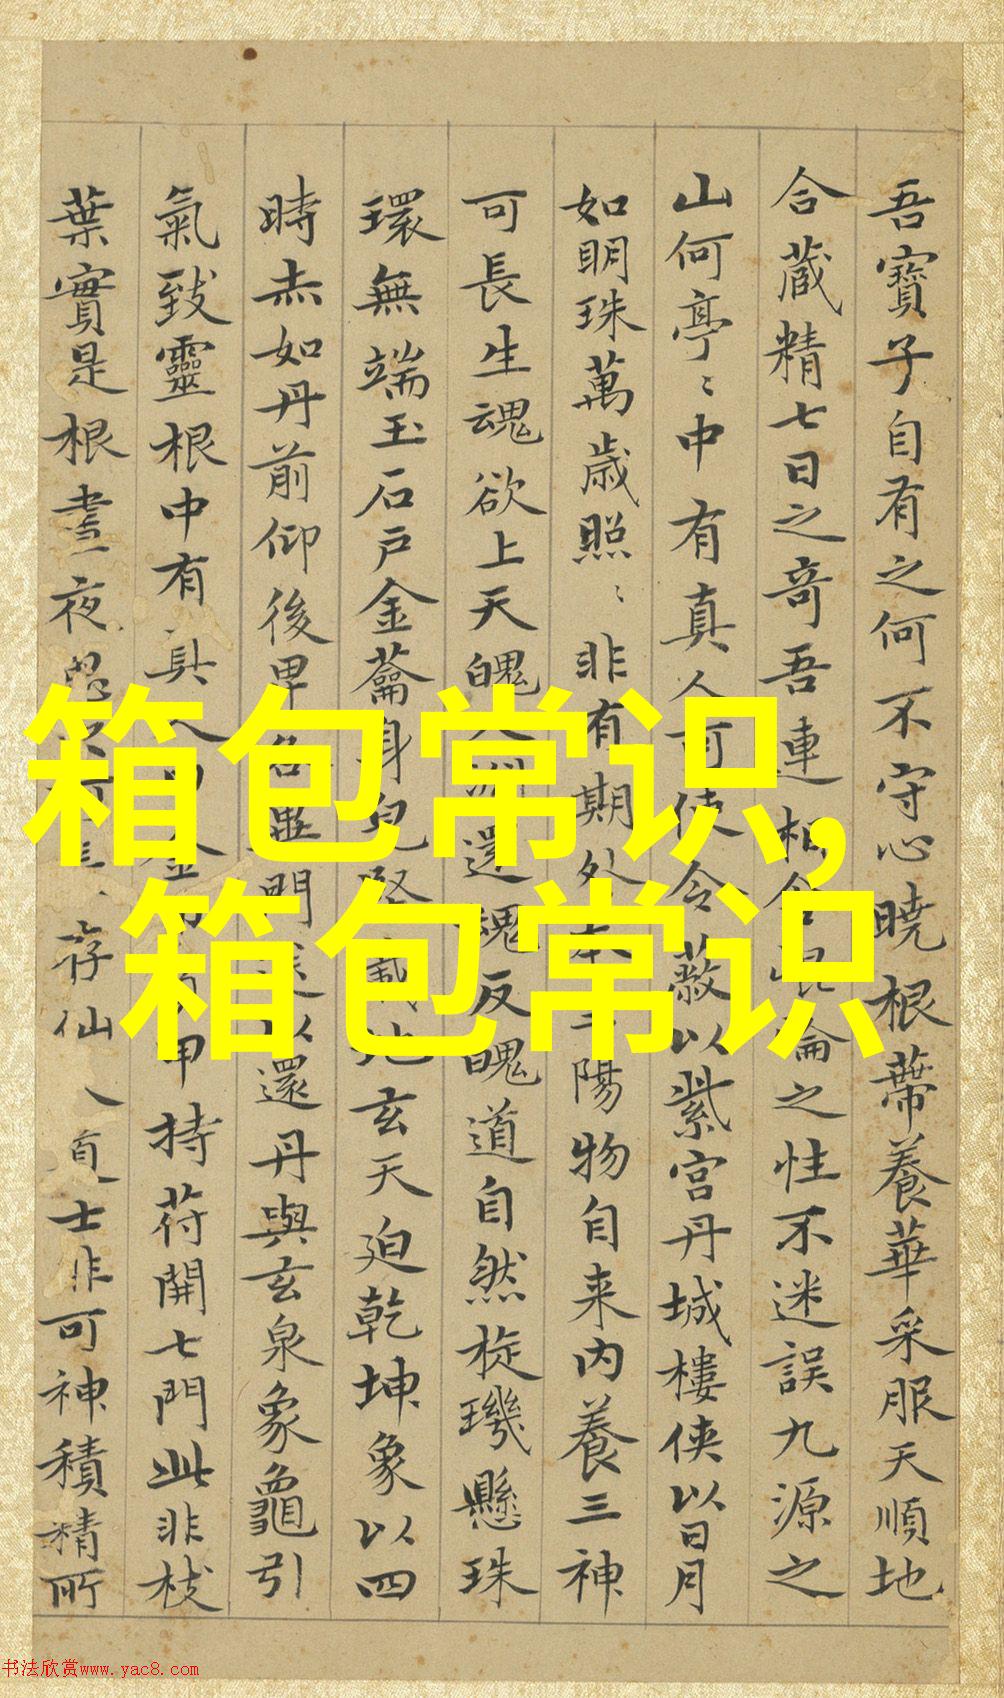 吾寶子自有之何不守心曉根蒂養華采服天順地
合蔵精七日之奇吾連相合崐崘之性不迷誤九源之
山何亭〻中有真人可使令蔽以紫宮丹城樓俠以日月
如明珠萬歲照〻非有期外本三陽物自来内養三神
可長生魂欲上天魄入淵還魂反魄道自然旋璣懸珠
環無端玉石戶金蘥身皃堅載地玄天迫乾坤象以四
時赤如丹前仰後卑各異門送以還丹與玄泉象龜引
氣致靈根中有真人巾金巾負甲持苻開七門此非枝
葉實是根晝夜思存仙人道士非可神積精所
箱包常识,
箱包常识
书法欣赏www.yac8.com